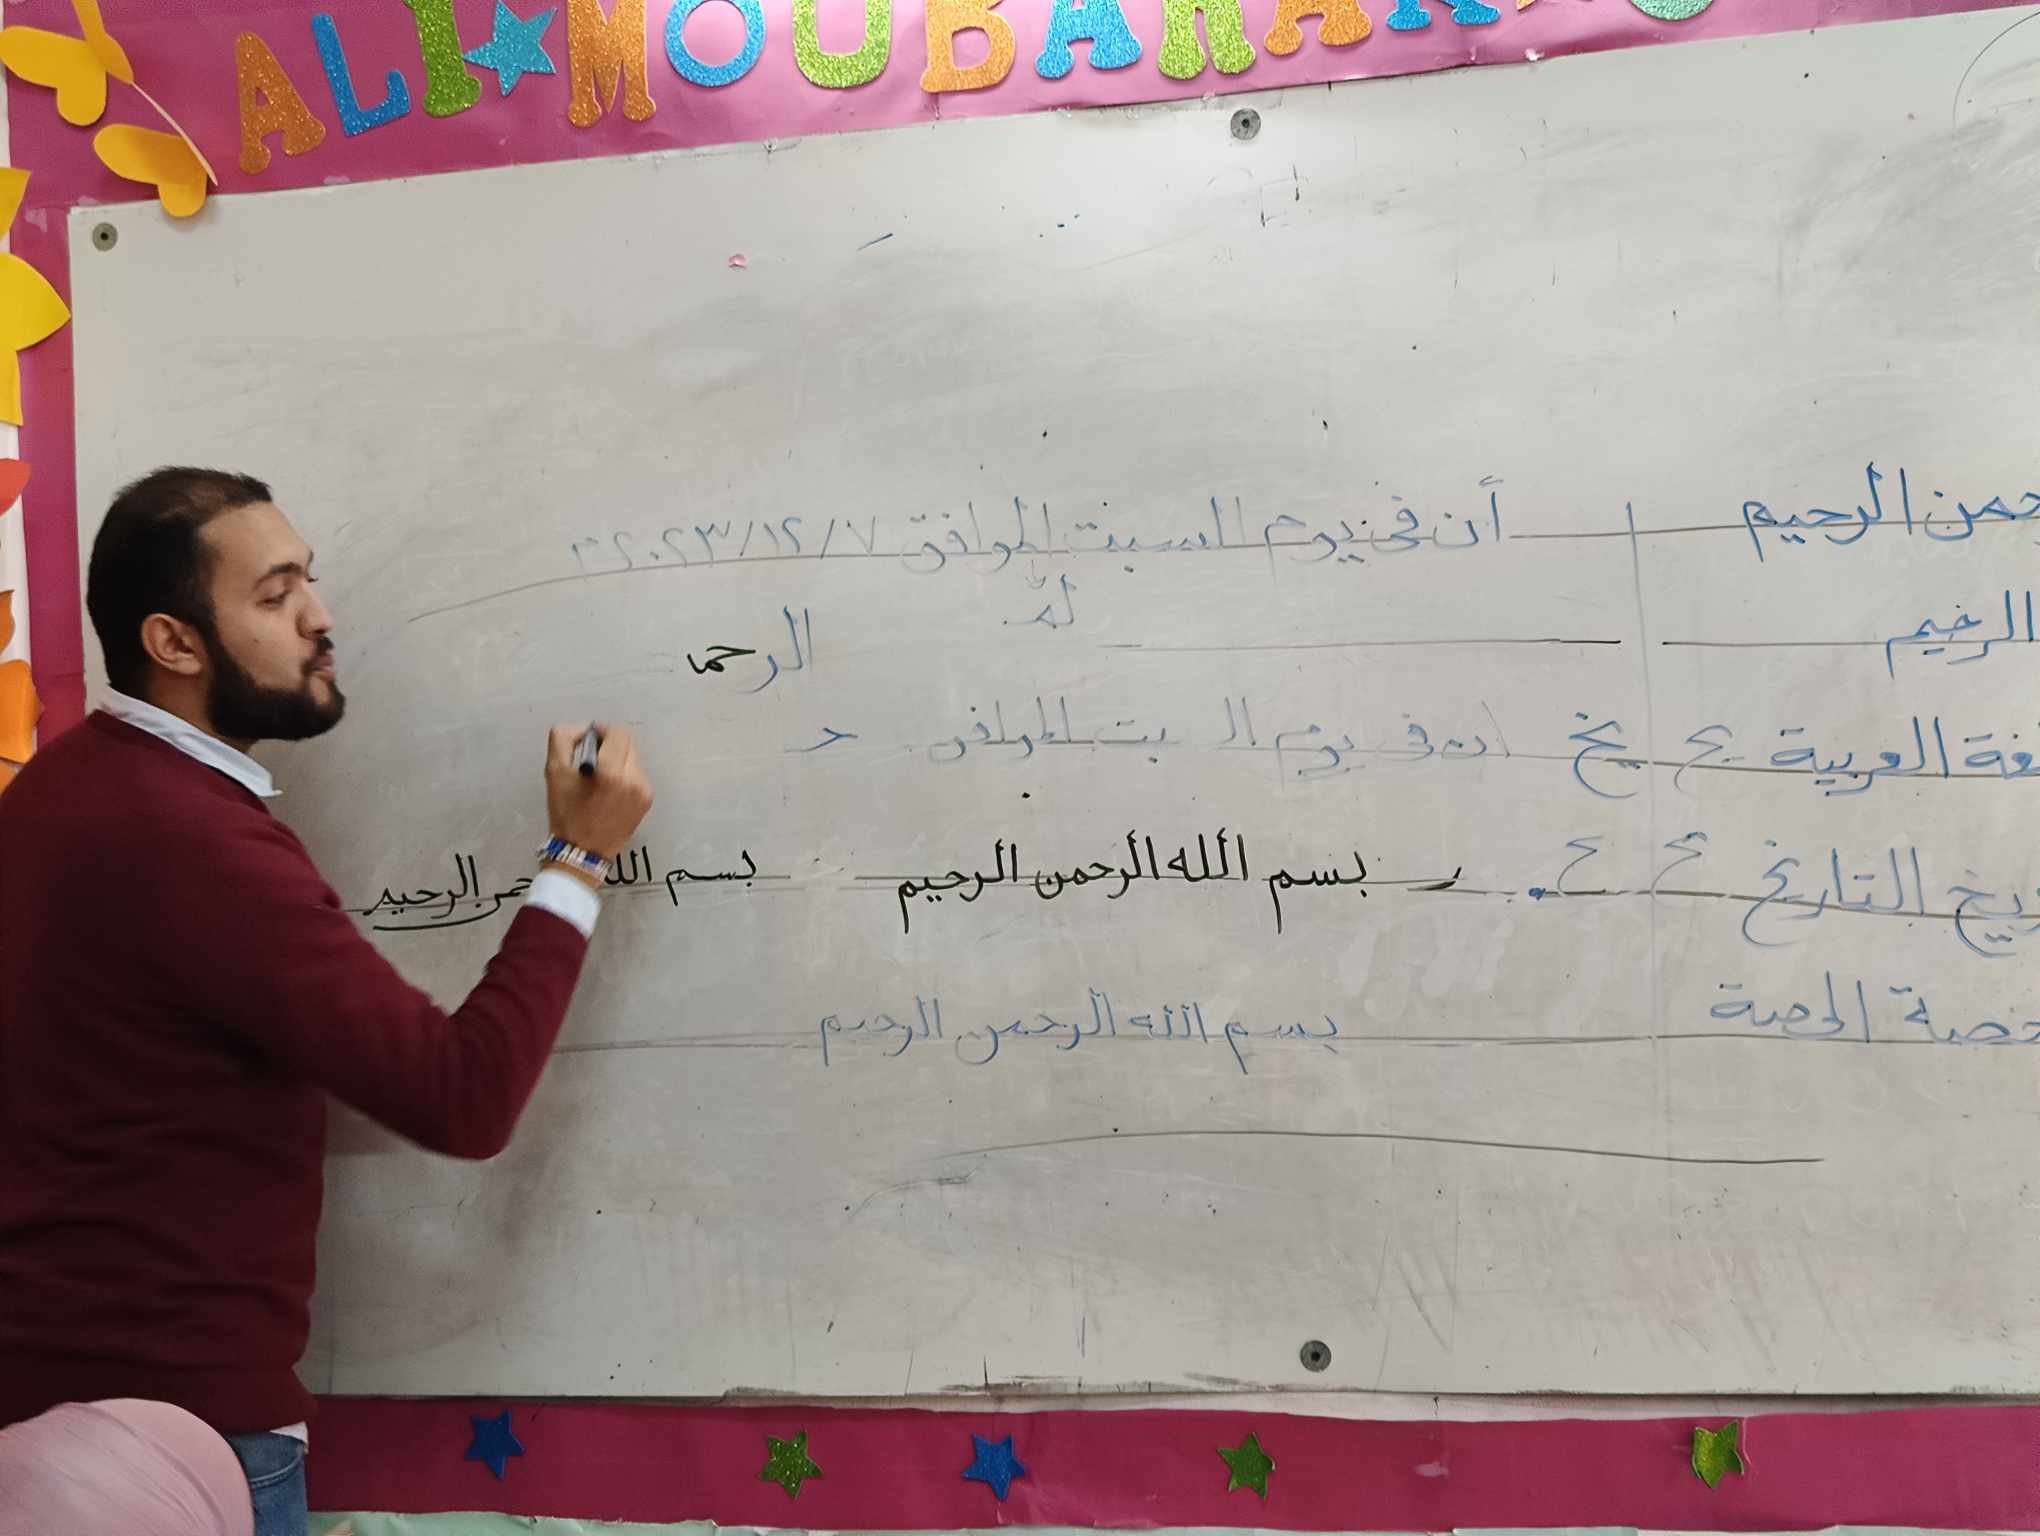 ALI★MOUBARAK
حمن الرحيم أن في يوم السبت الموافق ٢٠٢٣/١٢/٧
الرحيم لم الرحما
غة العربية يخ يخ ان في يوم ال بت الموافق
ريخ التاريخ بسم الله الرحمن الرحيم بسم الله حمن الرحيم
حصة الحصة بسم الله الرحمن الرحيم